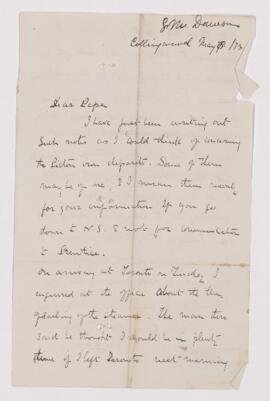 G M Dawson
Collingwood May 18 /73
Dear Papa
I have just been writing out
such notes as I could think of concerning
the Pictou iron deposits. Some of them
may be of use, & I mean them merely
for your information if you go
down to N.S. & not for communication
to Prentice.
On arriving at Toronto on Tuesday I
enquired at the office about the time
of sailing of the steamer. The man there
said he thought I should be in plenty
time if I left Toronto next morning